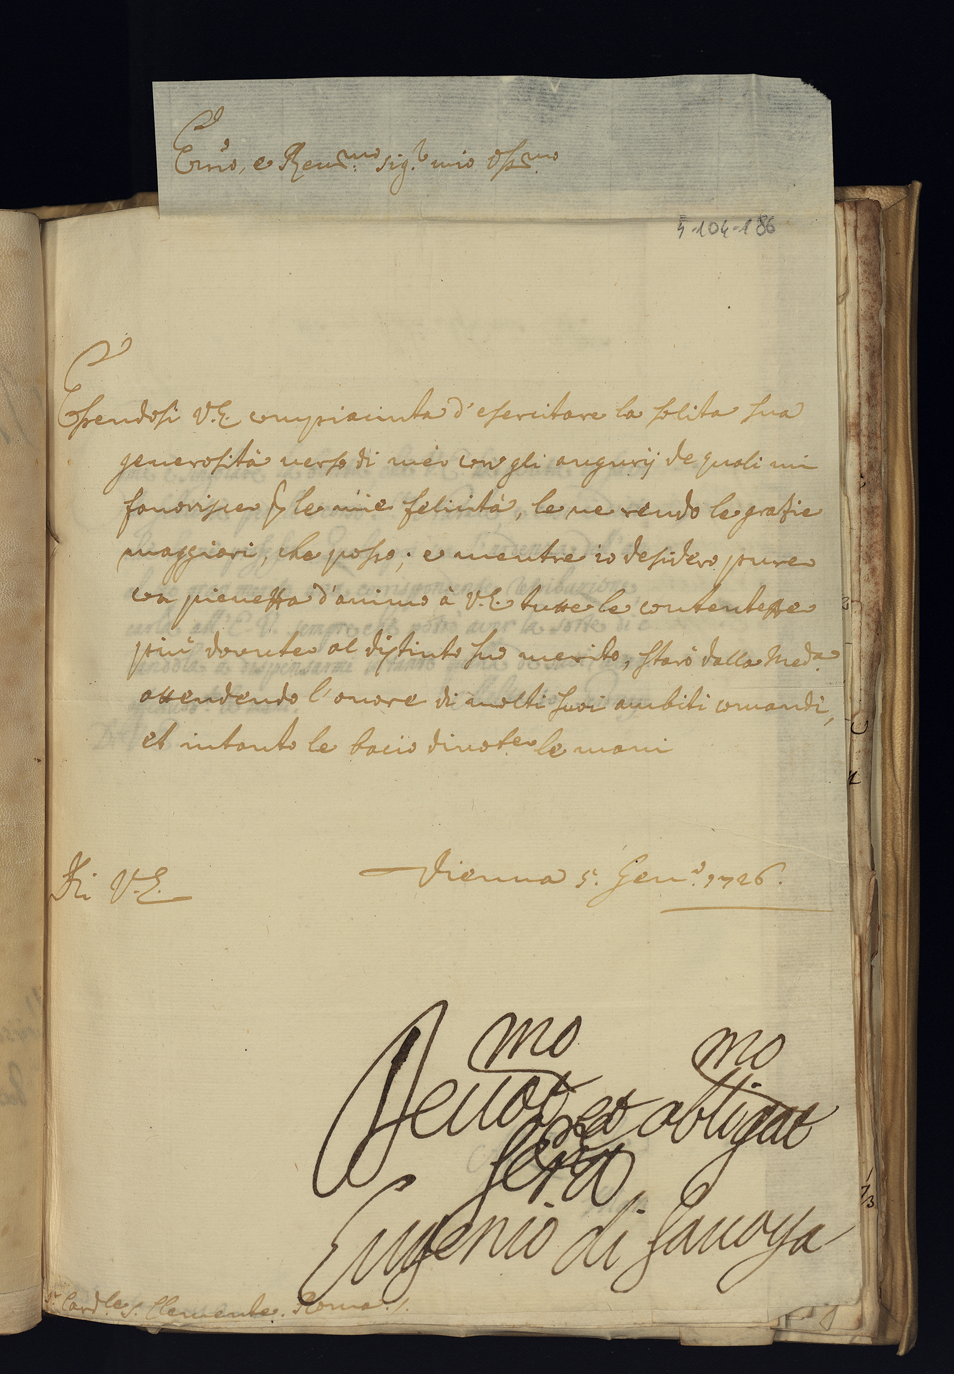 Em̃o, e Reu.mo sig.r mio oss.mo
4-104-186
Essendosi V.E. compiaciuta d'esercitare la solita sua
generosità verso di me con gli augurij de quali mi
favorisce per le mie felicità, le ne rendo le grazie
maggiori, che posso; e mentre io desidero pure
con pienezza d'animo à V.E. tutte le contentezze
più dovute al distinto suo merito, starò dalla Med.a
attendendo l'onore di molti suoi ambiti comandi,
et intanto le bacio diuot.e le mani
Di V.E.
Vienna 5. Gen.o 1726.
Deuot.mo et obligat.mo
seru.
Eugenio di Sauoya
Card.le S. Clemente. Roma.